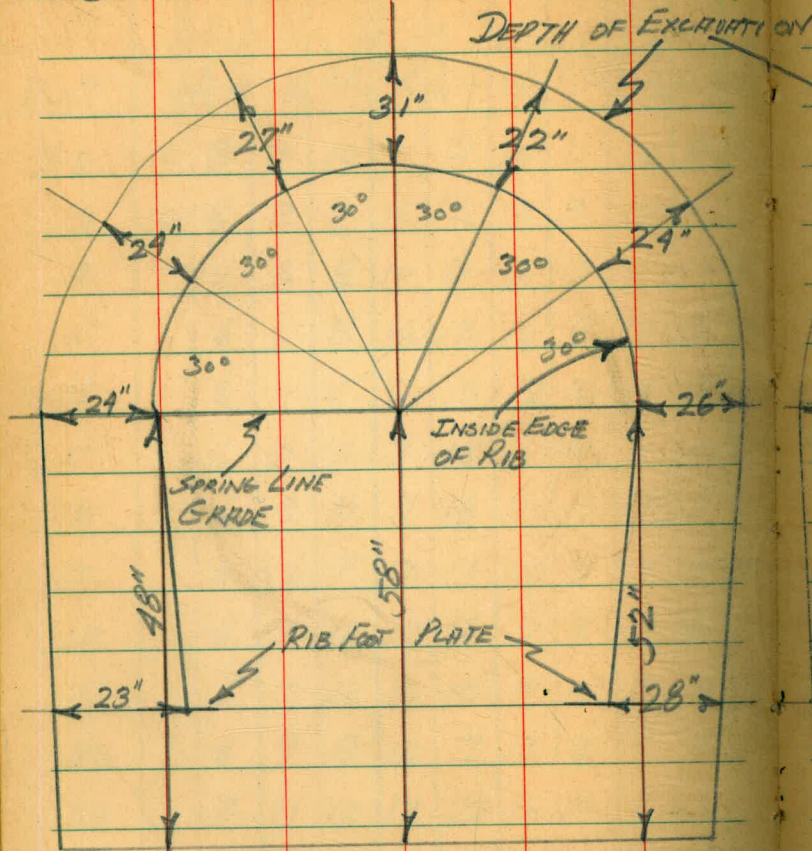 DEPTH OF EXCAVATION
31"
27"
22"
30° 30°
24"
24"
30°
30°
30°
30°
24"
26"
INSIDE EDGE
OF RIB
SPRING LINE
GRADE
48"
58"
52"
RIB FOOT PLATE
23"
28"